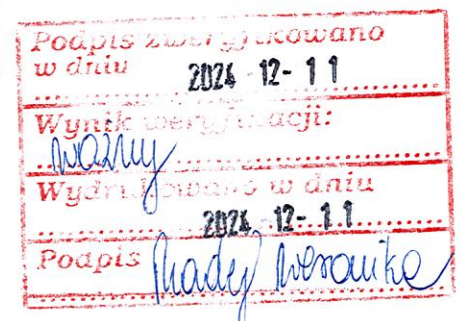 Podpis zweryfikowano
w dniu 2024 -12- 11
Wynik weryfikacji:
ważny
Wydrukowano w dniu
2024 -12- 11
Podpis Madej Weronika